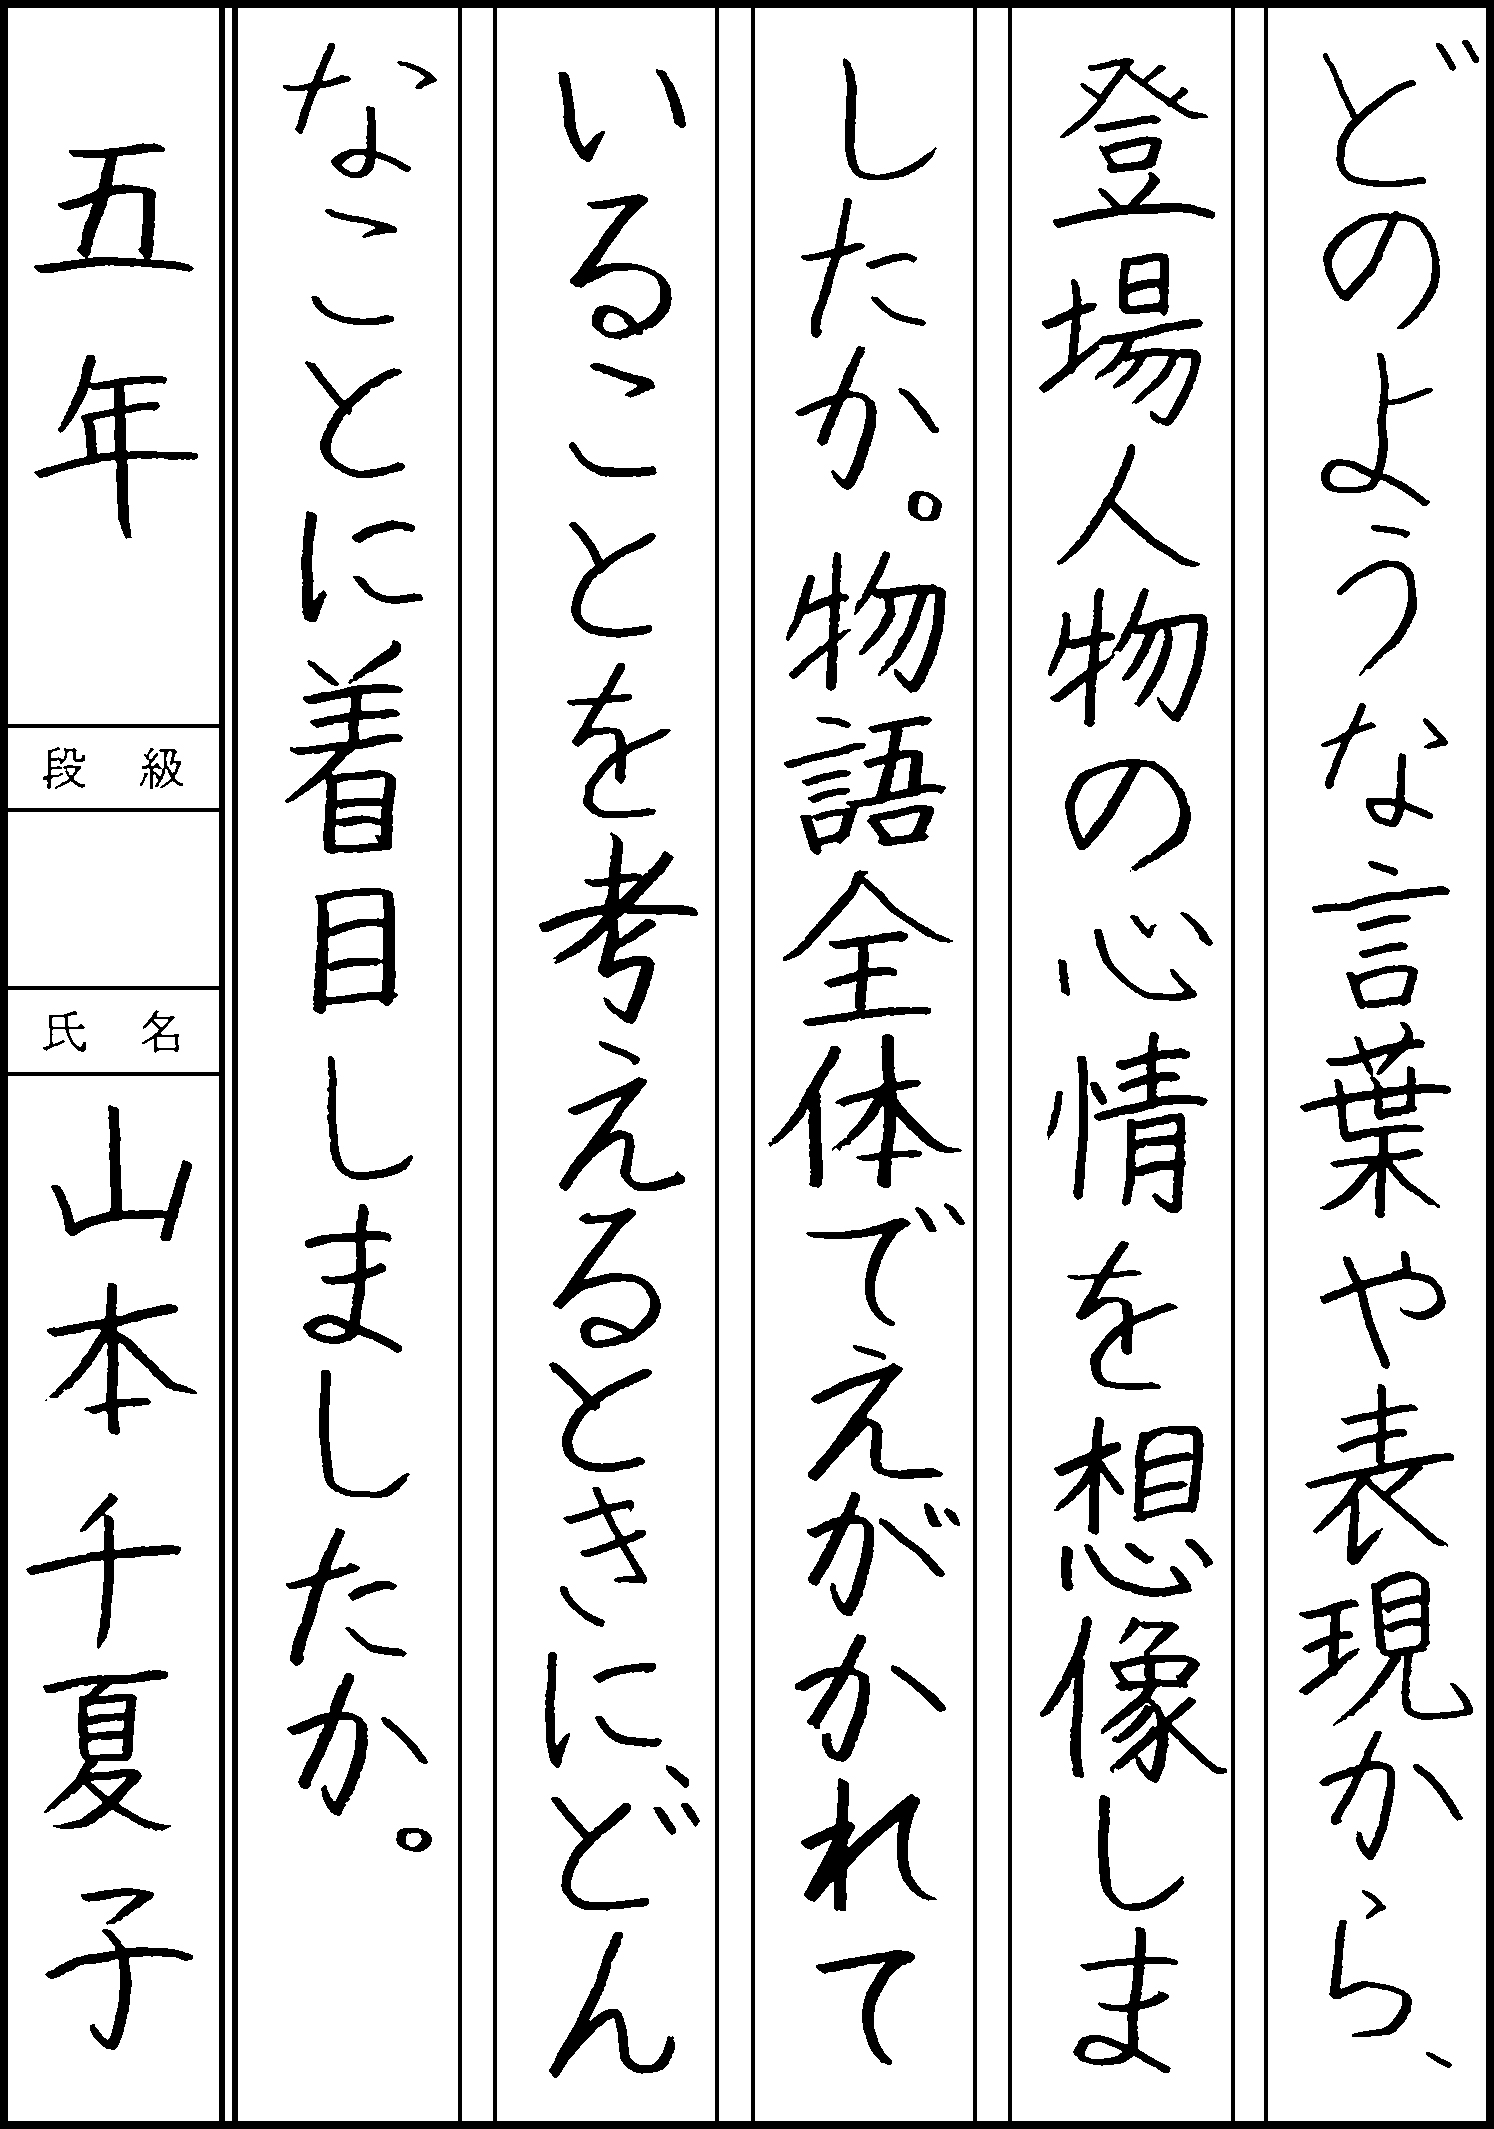 どのような言葉や表現から、
登場人物の心情を想像しま
したか。物語全体でえがかれて
いることを考えるときに、どん
なことに着目しましたか。
五年
段級
氏名
山本千夏子